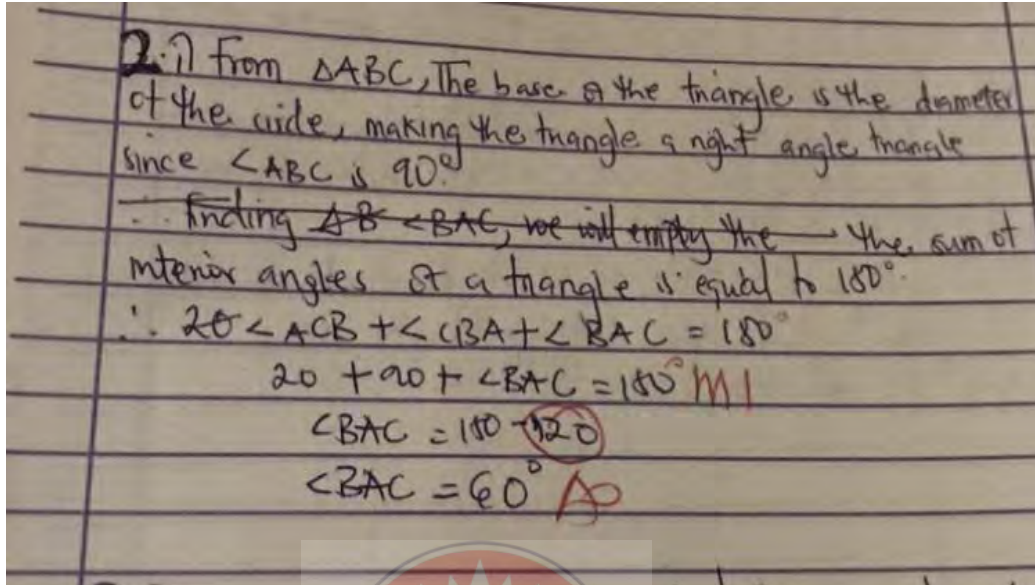 2.i) From ΔABC, The base of the triangle is the diameter
of the circle, making the triangle a right angle triangle
since <ABC is 90°
∴ finding AB <BAC, we will employ the the sum of
interior angles of a triangle is equal to 180°.
∴ 20 <ACB + <CBA + <BAC = 180°
20 + 90 + <BAC = 180° M1
<BAC = 180 - 120
<BAC = 60° A0